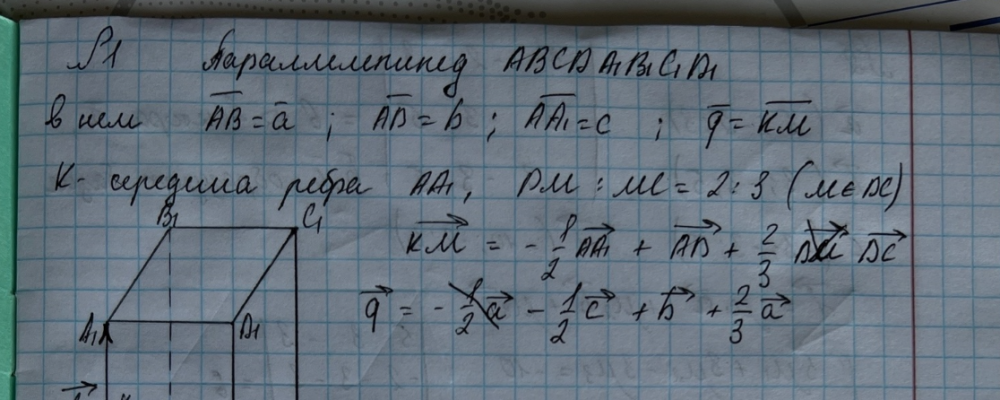 №1 Параллелепипед ABCDA₁B₁C₁D₁
в нем AB = a ; AD = b ; AA₁ = c ; q = KM
K - середина ребра AA₁, DM : MC = 2:3 (M∈DC)
B₁ C₁
KM = - 1/2 AA₁ + AD + 2/3 DC
q = - 1/2 a - 1/2 c + b + 2/3 a
A₁ D₁